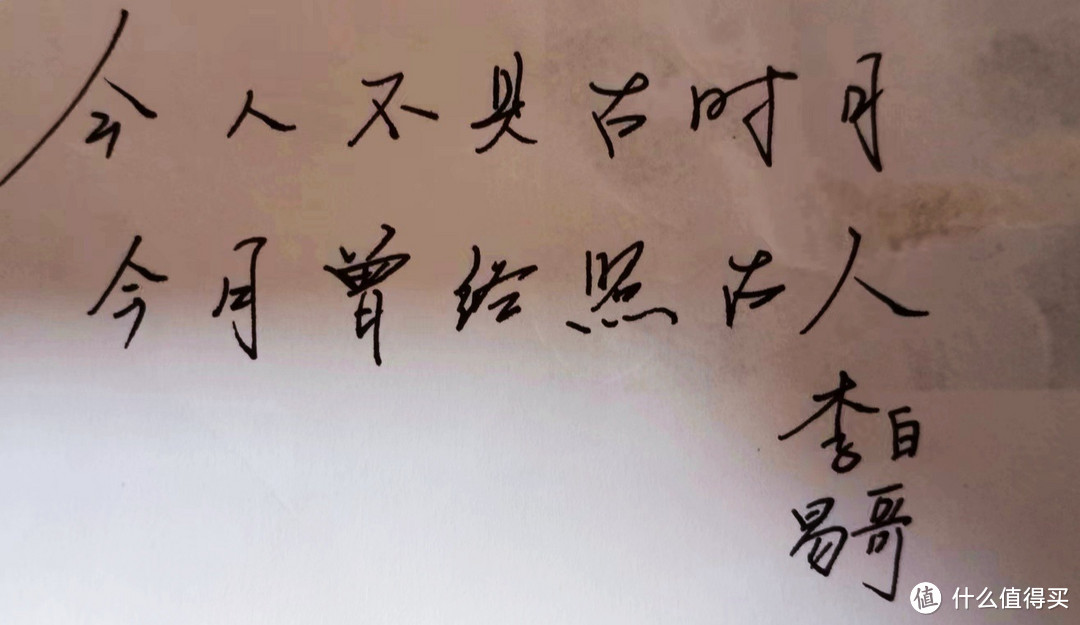 今人不見古时月
今月曾经照古人
李白
易哥
值 什么值得买